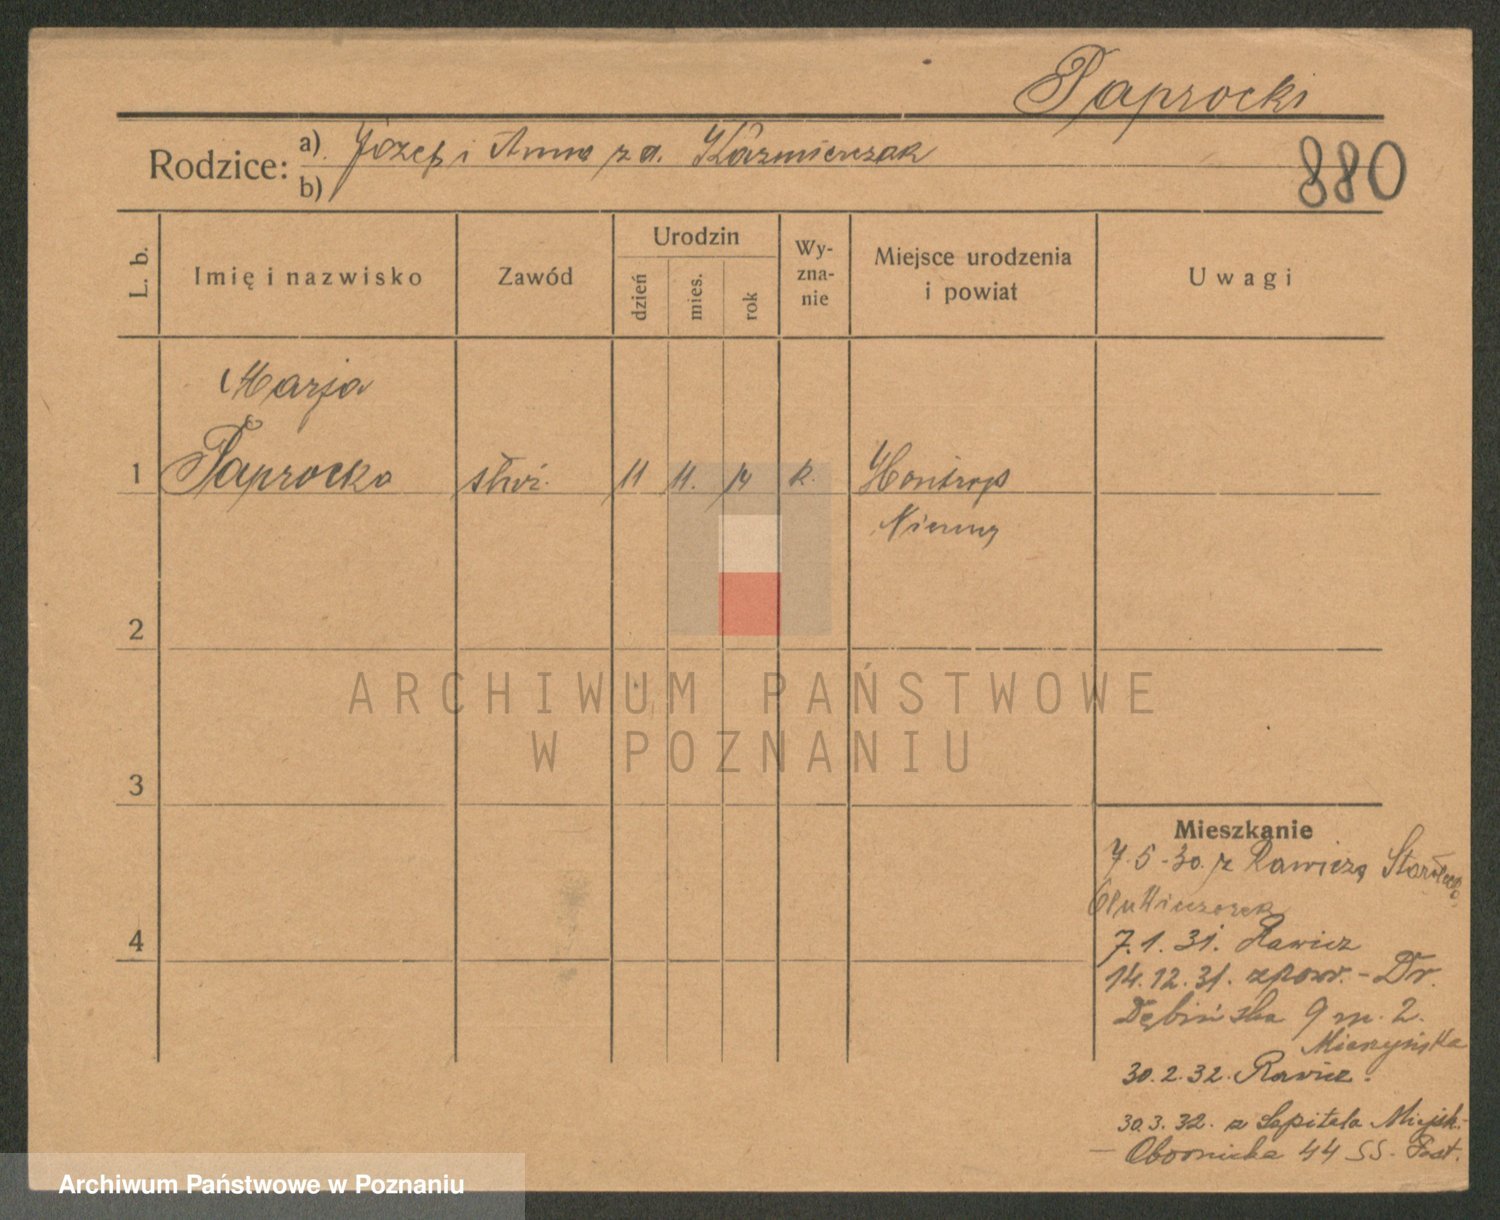 Paprocki
Rodzice: a) Józef i Anna z d. Kaźmierczak
b)
880
L. b.
Imię i nazwisko
Zawód
Urodzin
dzień
mies.
rok
Wy-
zna-
nie
Miejsce urodzenia
i powiat
Uwagi
Marja
1 Paprocka służ. 11 11. 14 k. Hontrop
Niemcy
2
3
4
Mieszkanie
7.5-30. z Rawicza Starołęcka
6 Wieczorek
7.1.31. Rawicz
14.12.31. zpow. - Dr.
Dębińska 9 m. 2.
30.2.32. Rawicz.
30.3.32. z Szpitala Miejsk. -
Obornicka 44 SS.
ARCHIWUM PAŃSTWOWE
W POZNANIU
Archiwum Państwowe w Poznaniu